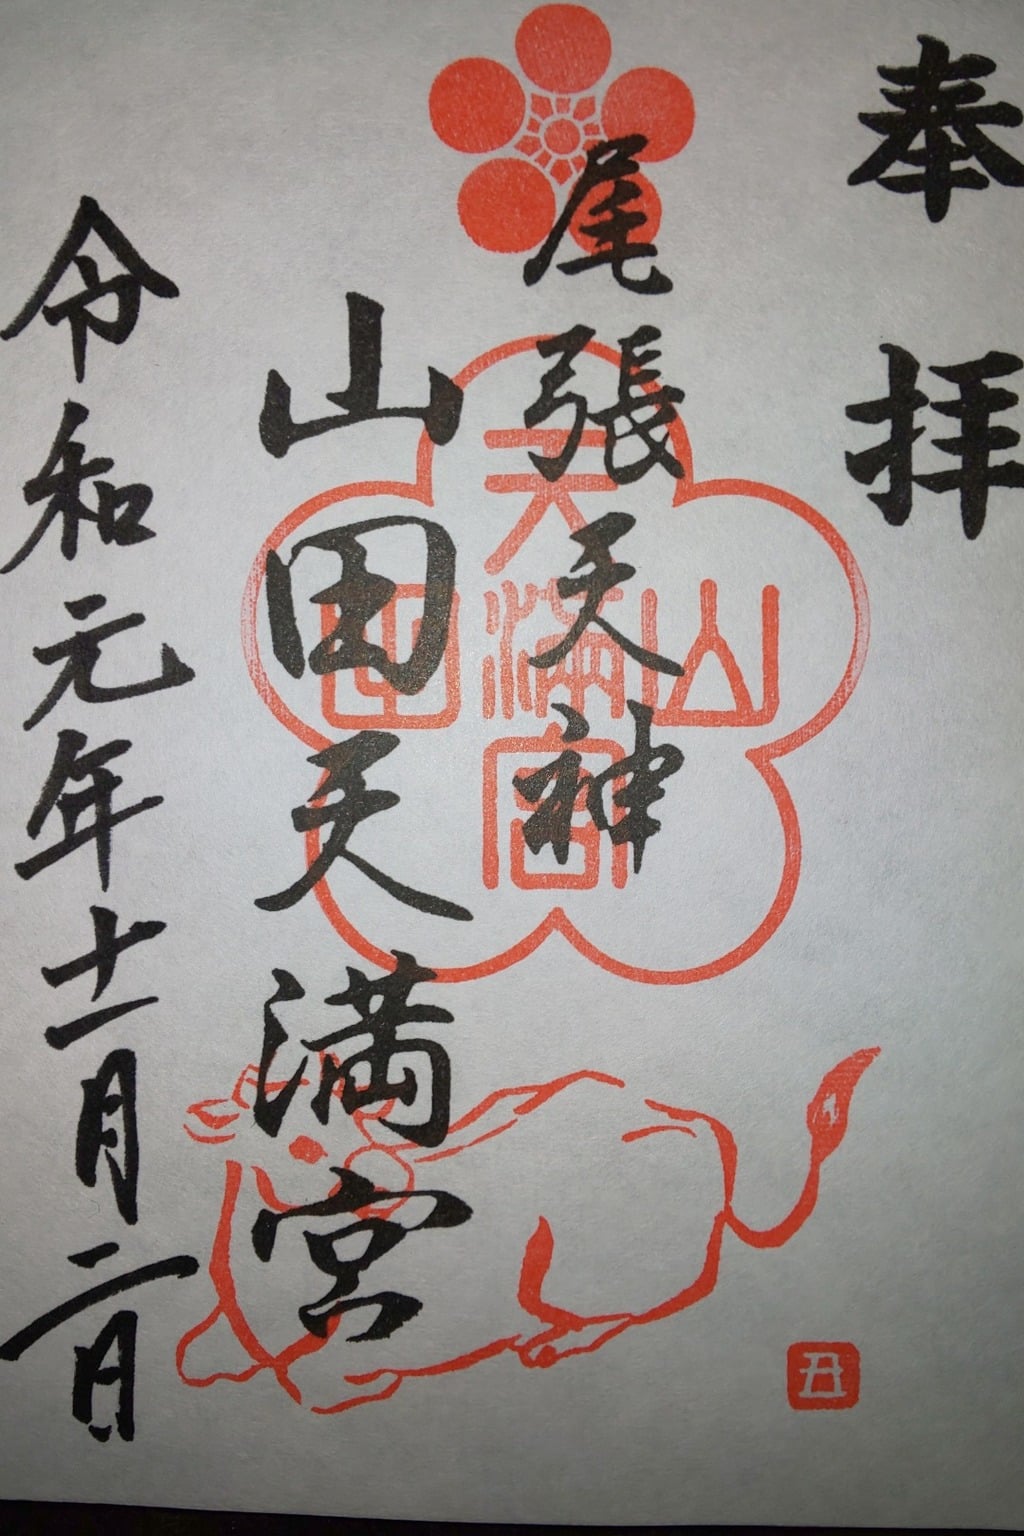 奉拝
尾張天神
山田天満宮
令和元年十一月二日
天
山満田
宮
丑